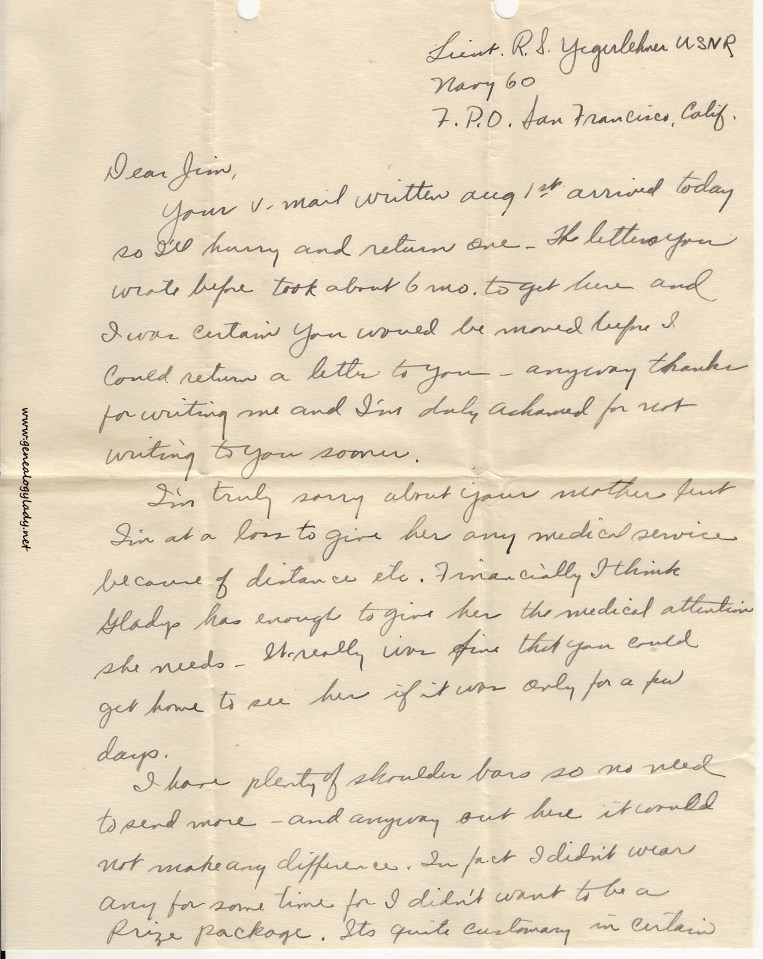 Lieut. R.S. Yegerlehner USNR
Navy 60
F.P.O. San Francisco, Calif.
Dear Jim,
Your V-mail written Aug 1st arrived today
so I'll hurry and return one - The letters you
wrote before took about 6 mo. to get here and
I was certain you would be moved before I
could return a letter to you - anyway thanks
for writing me and I'm duly ashamed for not
writing to you sooner.
I'm truly sorry about your mother but
I'm at a loss to give her any medical service
because of distance etc. Financially I think
Gladys has enough to give her the medical attention
she needs - It really was fine that you could
get home to see her if it was only for a few
days.
I have plenty of shoulder bars so no need
to send more - and anyway out here it would
not make any difference. In fact I didn't wear
any for some time for I didn't want to be a
Prize package. Its quite customary in certain
www.genealogylady.net